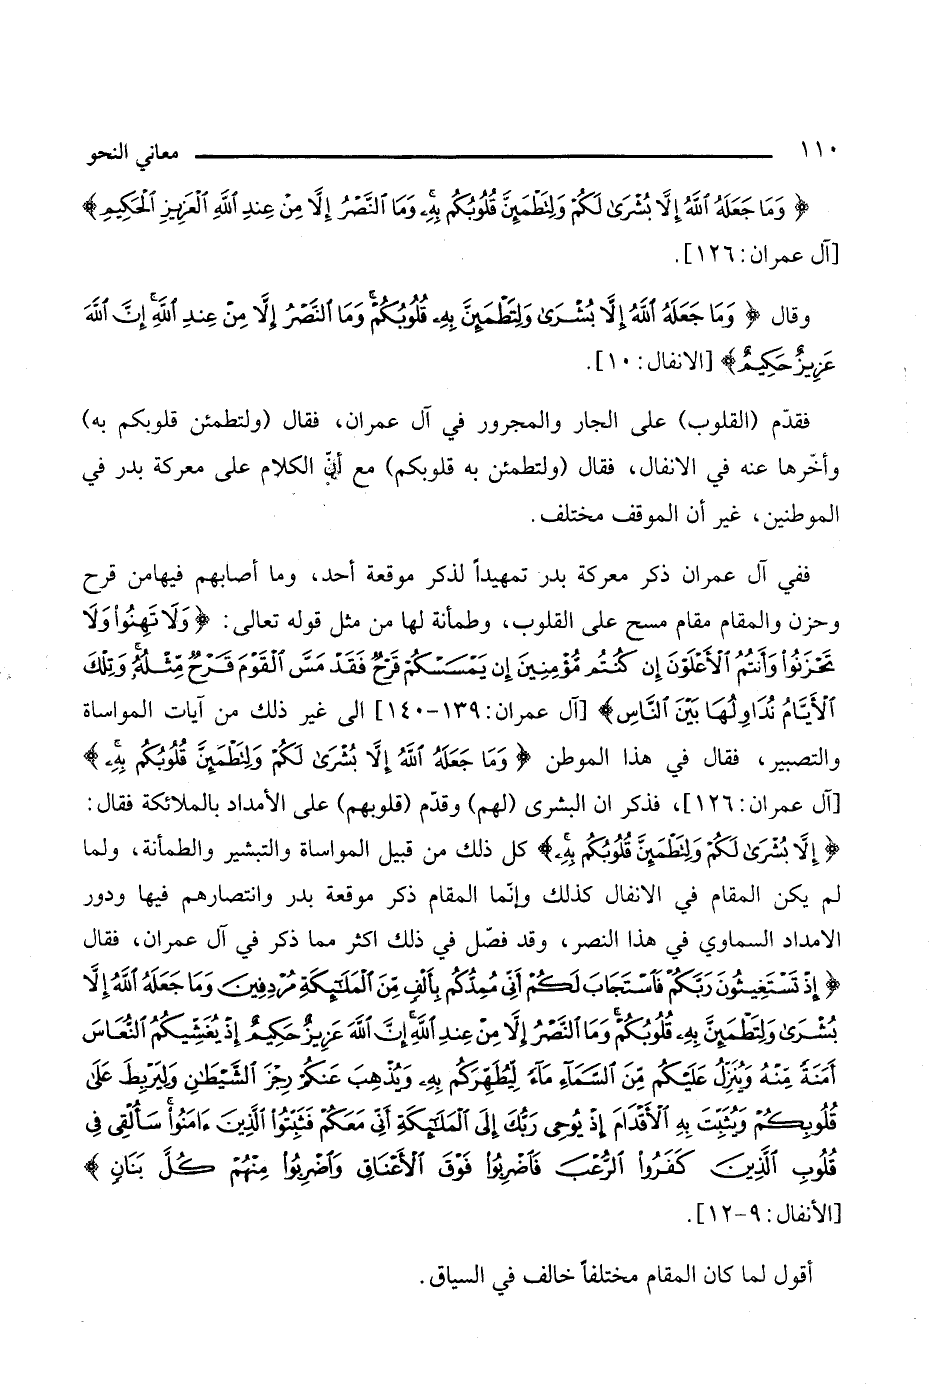 ١١٠ معاني النحو
﴿ وَمَا جَعَلَهُ ٱللَّهُ إِلَّا بُشْرَىٰ لَكُمْ وَلِتَطْمَئِنَّ قُلُوبُكُم بِهِۦۗ وَمَا ٱلنَّصْرُ إِلَّا مِنْ عِندِ ٱللَّهِ ٱلْعَزِيزِ ٱلْحَكِيمِ ﴾
[آل عمران: ١٢٦].
وقال ﴿ وَمَا جَعَلَهُ ٱللَّهُ إِلَّا بُشْرَىٰ وَلِتَطْمَئِنَّ بِهِۦ قُلُوبُكُمْۚ وَمَا ٱلنَّصْرُ إِلَّا مِنْ عِندِ ٱللَّهِۚ إِنَّ ٱللَّهَ
عَزِيزٌ حَكِيمٌ ﴾ [الانفال: ١٠].
فقدّم (القلوب) على الجار والمجرور في آل عمران، فقال (ولتطمئن قلوبكم به)
وأخّرها عنه في الانفال، فقال (ولتطمئن به قلوبكم) مع أنّ الكلام على معركة بدر في
الموطنين، غير أن الموقف مختلف.
ففي آل عمران ذكر معركة بدر تمهيداً لذكر موقعة أحد، وما أصابهم فيهامن قرح
وحزن والمقام مقام مسح على القلوب، وطمأنة لها من مثل قوله تعالى: ﴿ وَلَا تَهِنُوا۟ وَلَا
تَحْزَنُوا۟ وَأَنتُمُ ٱلْأَعْلَوْنَ إِن كُنتُم مُّؤْمِنِينَ إِن يَمْسَسْكُمْ قَرْحٌ فَقَدْ مَسَّ ٱلْقَوْمَ قَرْحٌ مِّثْلُهُۥۚ وَتِلْكَ
ٱلْأَيَّامُ نُدَاوِلُهَا بَيْنَ ٱلنَّاسِ ﴾ [آل عمران: ١٣٩-١٤٠] الى غير ذلك من آيات المواساة
والتصبير، فقال في هذا الموطن ﴿ وَمَا جَعَلَهُ ٱللَّهُ إِلَّا بُشْرَىٰ لَكُمْ وَلِتَطْمَئِنَّ قُلُوبُكُم بِهِۦۗ ﴾
[آل عمران: ١٢٦]، فذكر ان البشرى (لهم) وقدّم (قلوبهم) على الأمداد بالملائكة فقال:
﴿ إِلَّا بُشْرَىٰ لَكُمْ وَلِتَطْمَئِنَّ قُلُوبُكُم بِهِۦۗ ﴾ كل ذلك من قبيل المواساة والتبشير والطمأنة، ولما
لم يكن المقام في الانفال كذلك وإنّما المقام ذكر موقعة بدر وانتصارهم فيها ودور
الامداد السماوي في هذا النصر، وقد فصّل في ذلك اكثر مما ذكر في آل عمران، فقال
﴿ إِذْ تَسْتَغِيثُونَ رَبَّكُمْ فَٱسْتَجَابَ لَكُمْ أَنِّى مُمِدُّكُم بِأَلْفٍ مِّنَ ٱلْمَلَـٰٓئِكَةِ مُرْدِفِينَ وَمَا جَعَلَهُ ٱللَّهُ إِلَّا
بُشْرَىٰ وَلِتَطْمَئِنَّ بِهِۦ قُلُوبُكُمْۚ وَمَا ٱلنَّصْرُ إِلَّا مِنْ عِندِ ٱللَّهِۚ إِنَّ ٱللَّهَ عَزِيزٌ حَكِيمٌ إِذْ يُغَشِّيكُمُ ٱلنُّعَاسَ
أَمَنَةً مِّنْهُ وَيُنَزِّلُ عَلَيْكُم مِّنَ ٱلسَّمَآءِ مَآءً لِّيُطَهِّرَكُم بِهِۦ وَيُذْهِبَ عَنكُمْ رِجْزَ ٱلشَّيْطَـٰنِ وَلِيَرْبِطَ عَلَىٰ
قُلُوبِكُمْ وَيُثَبِّتَ بِهِ ٱلْأَقْدَامَ إِذْ يُوحِى رَبُّكَ إِلَى ٱلْمَلَـٰٓئِكَةِ أَنِّى مَعَكُمْ فَثَبِّتُوا۟ ٱلَّذِينَ ءَامَنُوا۟ۚ سَأُلْقِى فِى
قُلُوبِ ٱلَّذِينَ كَفَرُوا۟ ٱلرُّعْبَ فَٱضْرِبُوا۟ فَوْقَ ٱلْأَعْنَاقِ وَٱضْرِبُوا۟ مِنْهُمْ كُلَّ بَنَانٍ ﴾
[الأنفال: ٩-١٢].
أقول لما كان المقام مختلفاً خالف في السياق.